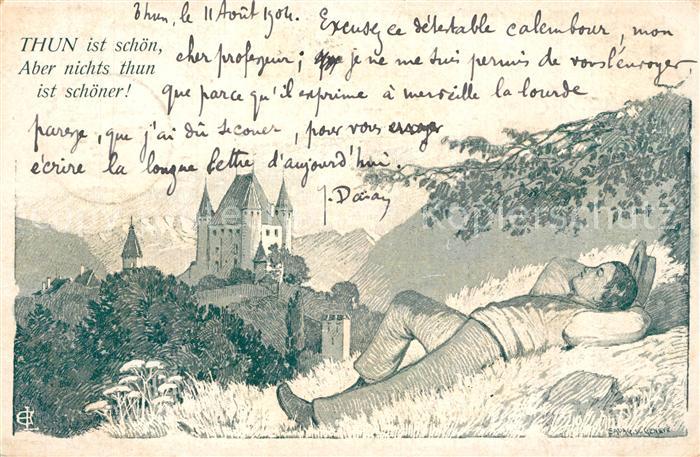 Thun, le 11 Août 1904. Excusez ce détestable calembour, mon
cher professeur ; je ne me suis permis de vous l'envoyer,
que parce qu'il exprime à merveille la lourde
paresse, que j'ai dû secouer, pour vous
écrire la longue lettre d'aujourd'hui.
J.
THUN ist schön,
Aber nichts thun
ist schöner!